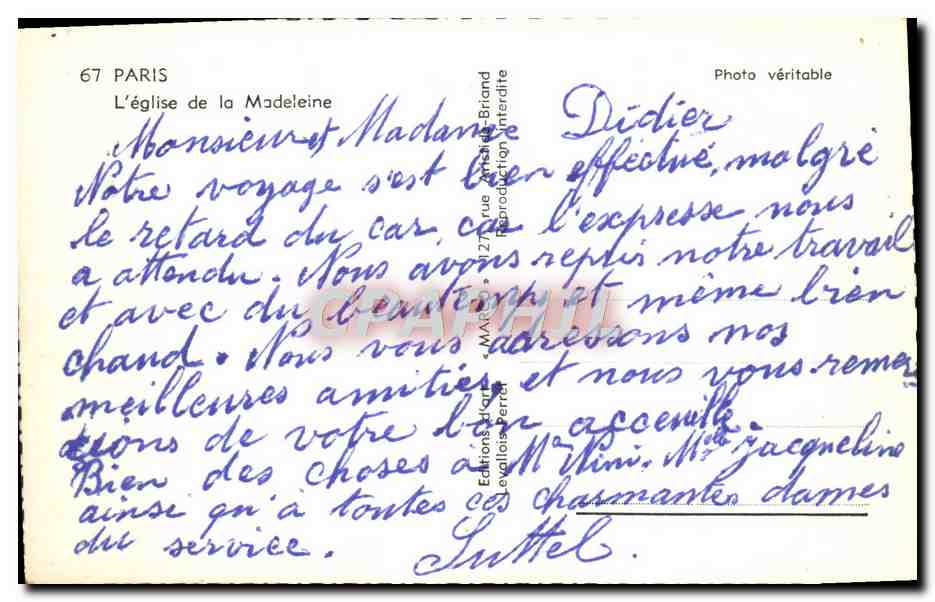 67 PARIS
L'église de la Madeleine
Photo véritable
Monsieur et Madame Didier
Notre voyage s'est bien effectué, malgré
le retard du car, car l'expresse nous
a attendu. Nous avons repris notre travail
et avec du beau temps et même bien
chaud. Nous vous adressons nos
meilleures amitiés, et nous vous remer
cions de votre bon acceuille.
Bien des choses à Mr Nini. Mlle Jacqueline
ainse qu'à toutes ces charmantes dames
du service. Suttel.
Editions d'art « MARCO » 127, rue Aristide-Briand
Levallois-Perret Reproduction interdite
CPAPHIL